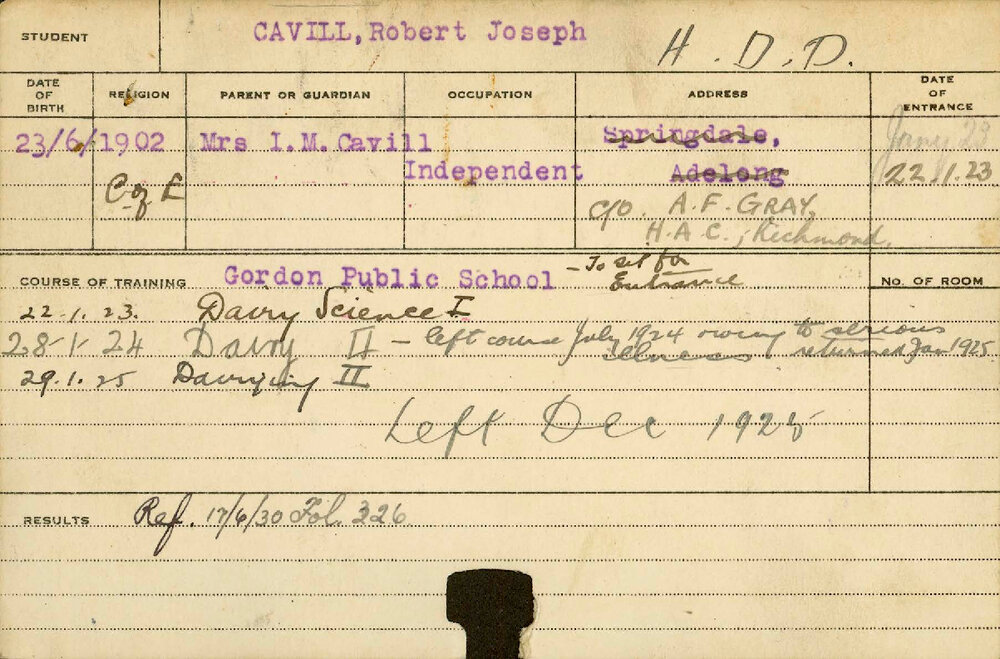 STUDENT CAVILL, Robert Joseph H.D.D.
DATE OF BIRTH RELIGION PARENT OR GUARDIAN OCCUPATION ADDRESS DATE OF ENTRANCE
23/6/1902 Mrs I.M. Cavill Springdale, Jany 23
Independent Adelong 22.1.23
C of E c/o A.F. GRAY,
H.A.C., Richmond.
COURSE OF TRAINING Gordon Public School - To sit for Entrance No. OF ROOM
22.1.23. Dairy Science I
28-1-24 Dairy II - left course July 1924 owing to serious
illness returned Jan 1925.
29.1.25 Dairying II
Left Dec 1925
RESULTS Ref. 17/6/30 Fol. 326